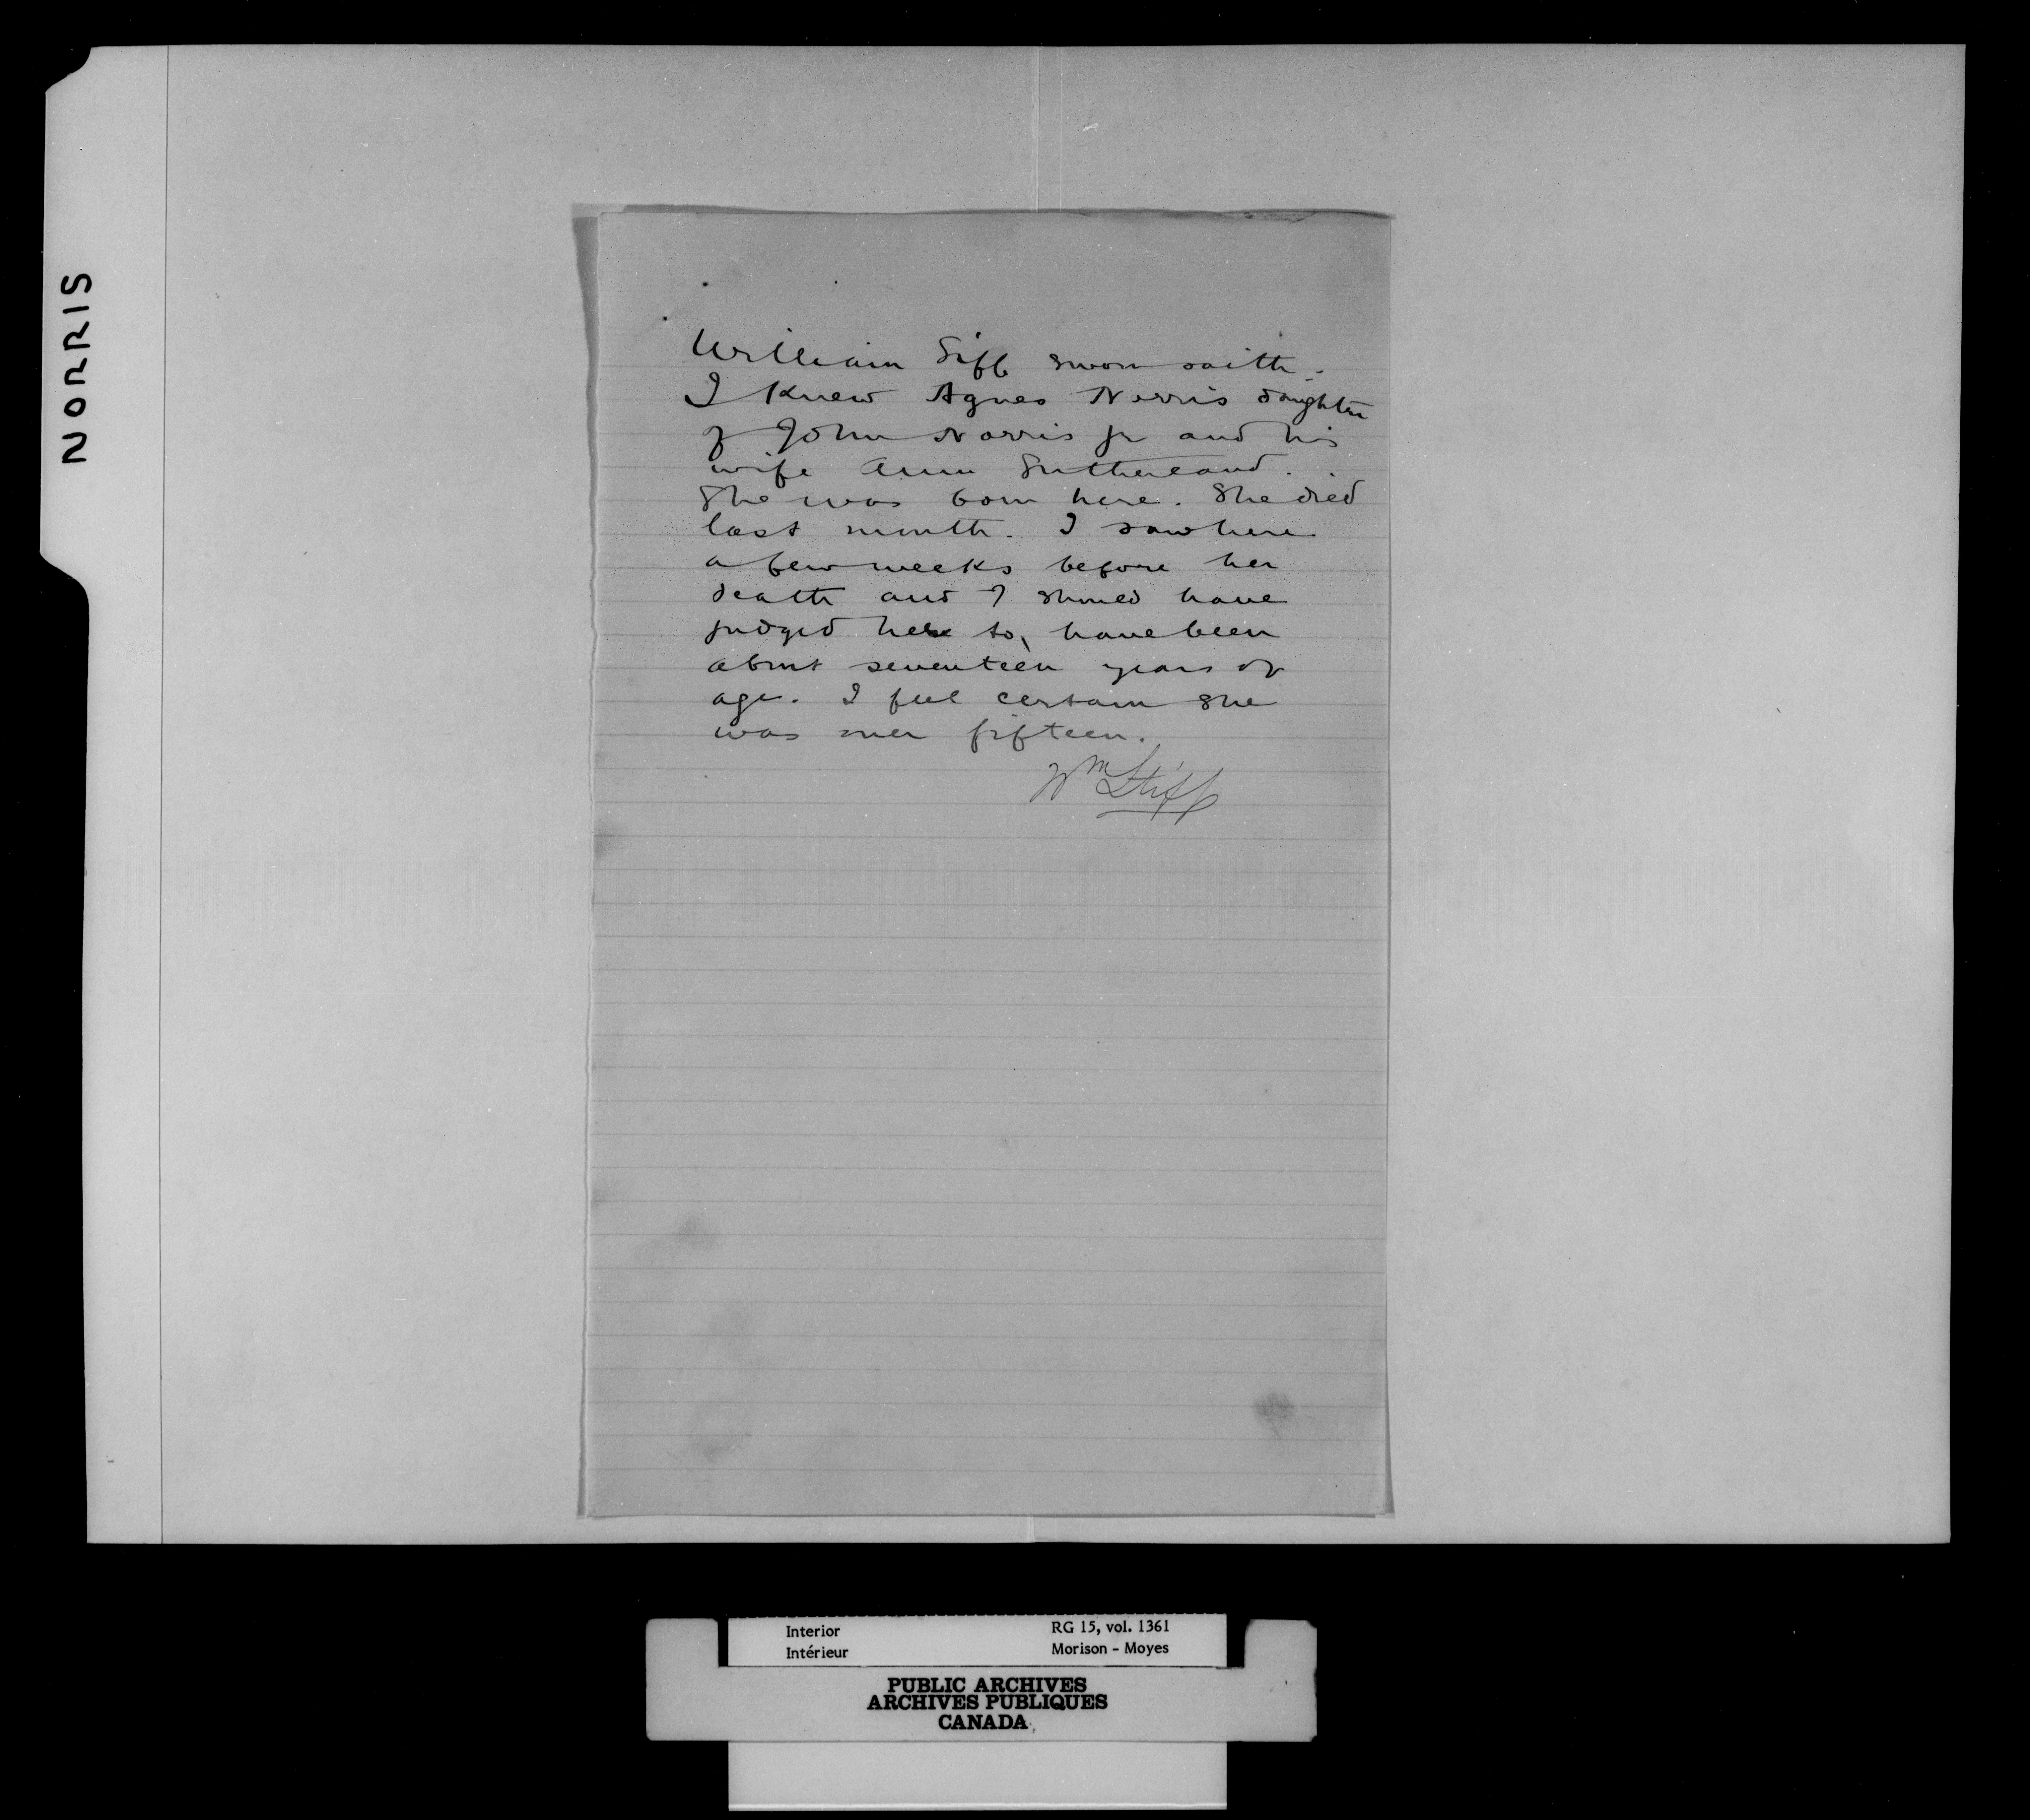 NORRIS
William Siff sworn saith.
I knew Agnes Norris daughter
of John Norris Jr and his
wife Ann Sutherland.
She was born here. She died
last month. I saw here
a few weeks before her
death and I should have
judged her to have been
about seventeen years of
age. I feel certain she
was over fifteen.
Wm Stiff
Interior RG 15, vol. 1361
Intérieur Morison - Moyes
PUBLIC ARCHIVES
ARCHIVES PUBLIQUES
CANADA